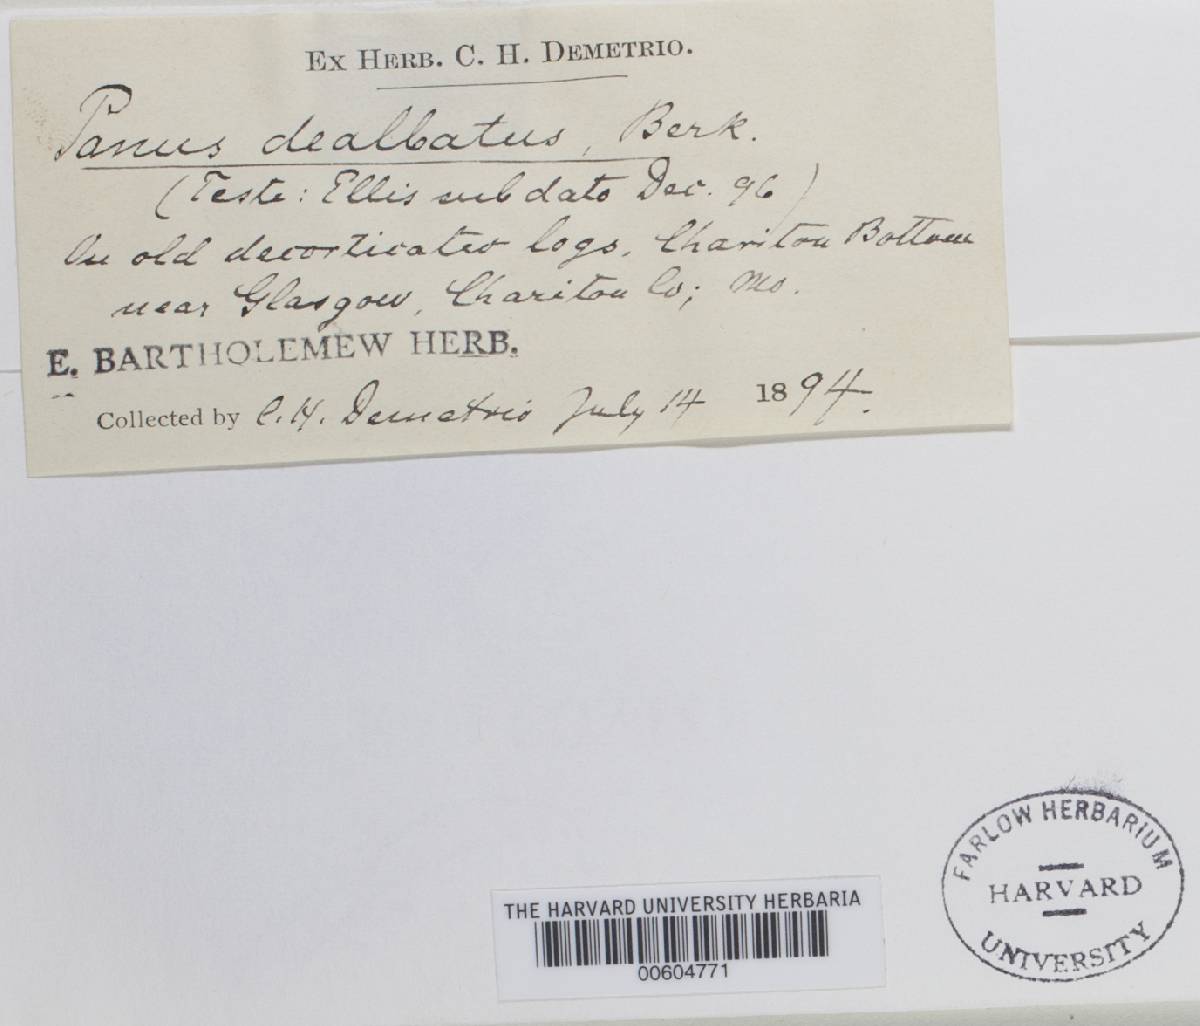 Ex Herb. C. H. Demetrio.
Panus dealbatus, Berk.
(Teste: Ellis sub dato Dec. 96)
On old decorticated logs, Chariton Bottom
near Glasgow, Chariton Co; Mo.
E. BARTHOLEMEW HERB.
Collected by C. H. Demetrio July 14 1894.
FARLOW HERBARIUM
HARVARD
UNIVERSITY
THE HARVARD UNIVERSITY HERBARIA
00604771